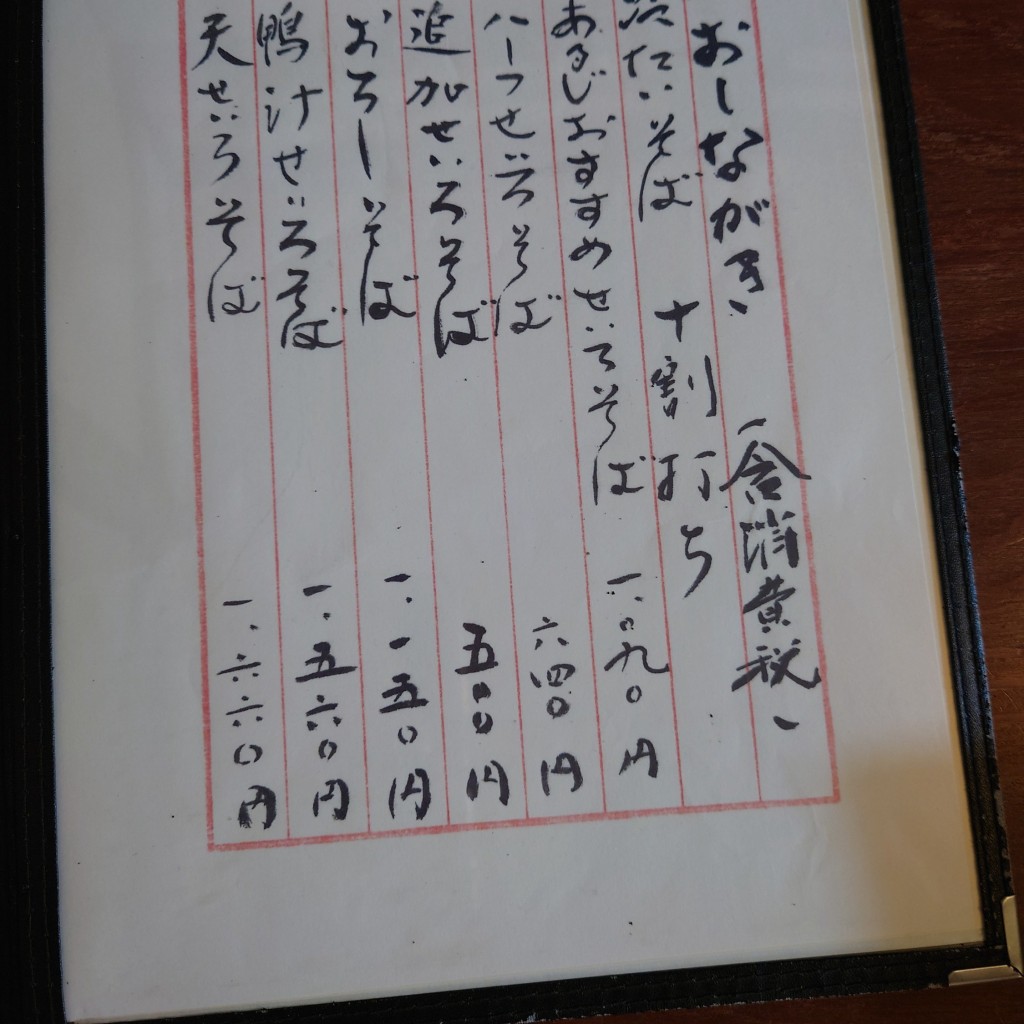 おしながき（含消費税）
冷たいそば 十割打ち
あるじおすすめせいろそば 一.〇九〇円
ハーフせいろそば 六四〇円
追加せいろそば 五〇〇円
おろしそば 一.一五〇円
鴨汁せいろそば 一.五六〇円
天せいろそば 一.六六〇円